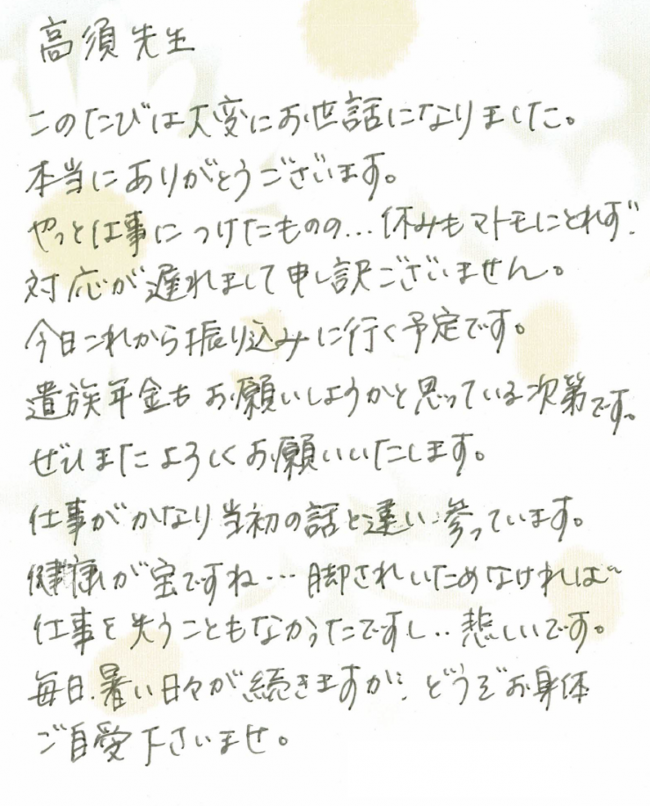 高須先生
このたびは大変にお世話になりました。
本当にありがとうございます。
やっと仕事につけたものの…休みもマトモにとれず…
対応が遅れまして申し訳ございません。
今日これから振り込みに行く予定です。
遺族年金もお願いしようかと思っている次第です。
ぜひまたよろしくお願いいたします。
仕事がかなり当初の話と違い参っています。
健康が宝ですね…脚されいためなければ
仕事を失うこともなかったですし‥悲しいです。
毎日、暑い日々が続きますが、どうぞお身体
ご自愛下さいませ。